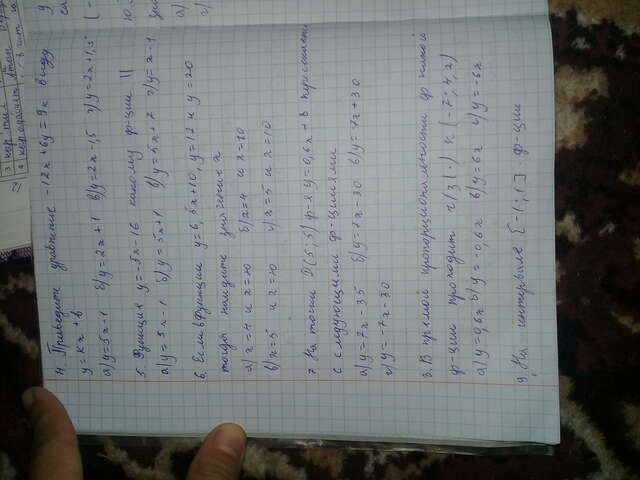 3 кор тил
4
4. Приведите уравнение -12x + 6y = 9 к виду
y = kx + b
а) y=5x-1 б) y=2x+1 в) y=2x-1,5 г) y=2x+1,5
5. Функция y=-5x-16 какому ф-ции ||
а) y=5x-1 б) y=5x+1 в) y=5x+7 г) y=x-1
6. Если в функции y=6,5x+10, y=12 и y=20
тогда найдите значение x
а) x=4 и x=10 б) x=4 и x=10
в) x=5 и x=10 г) x=5 и x=10
7. На точки D(5;5) ф-я y=0,6x+b пересекается
с следующими ф-циями
а) y=7x-35 б) y=7x-30 в) y=7x+30
г) y=-7x-30
8. В прямой пропорциональности ф какой
ф-ции проходит ч/з (·) K(-7;4,2)
а) y=0,6x б) y=-0,6x в) y=6x г) y=-6x
9. На интервале [-1;1] ф-ции